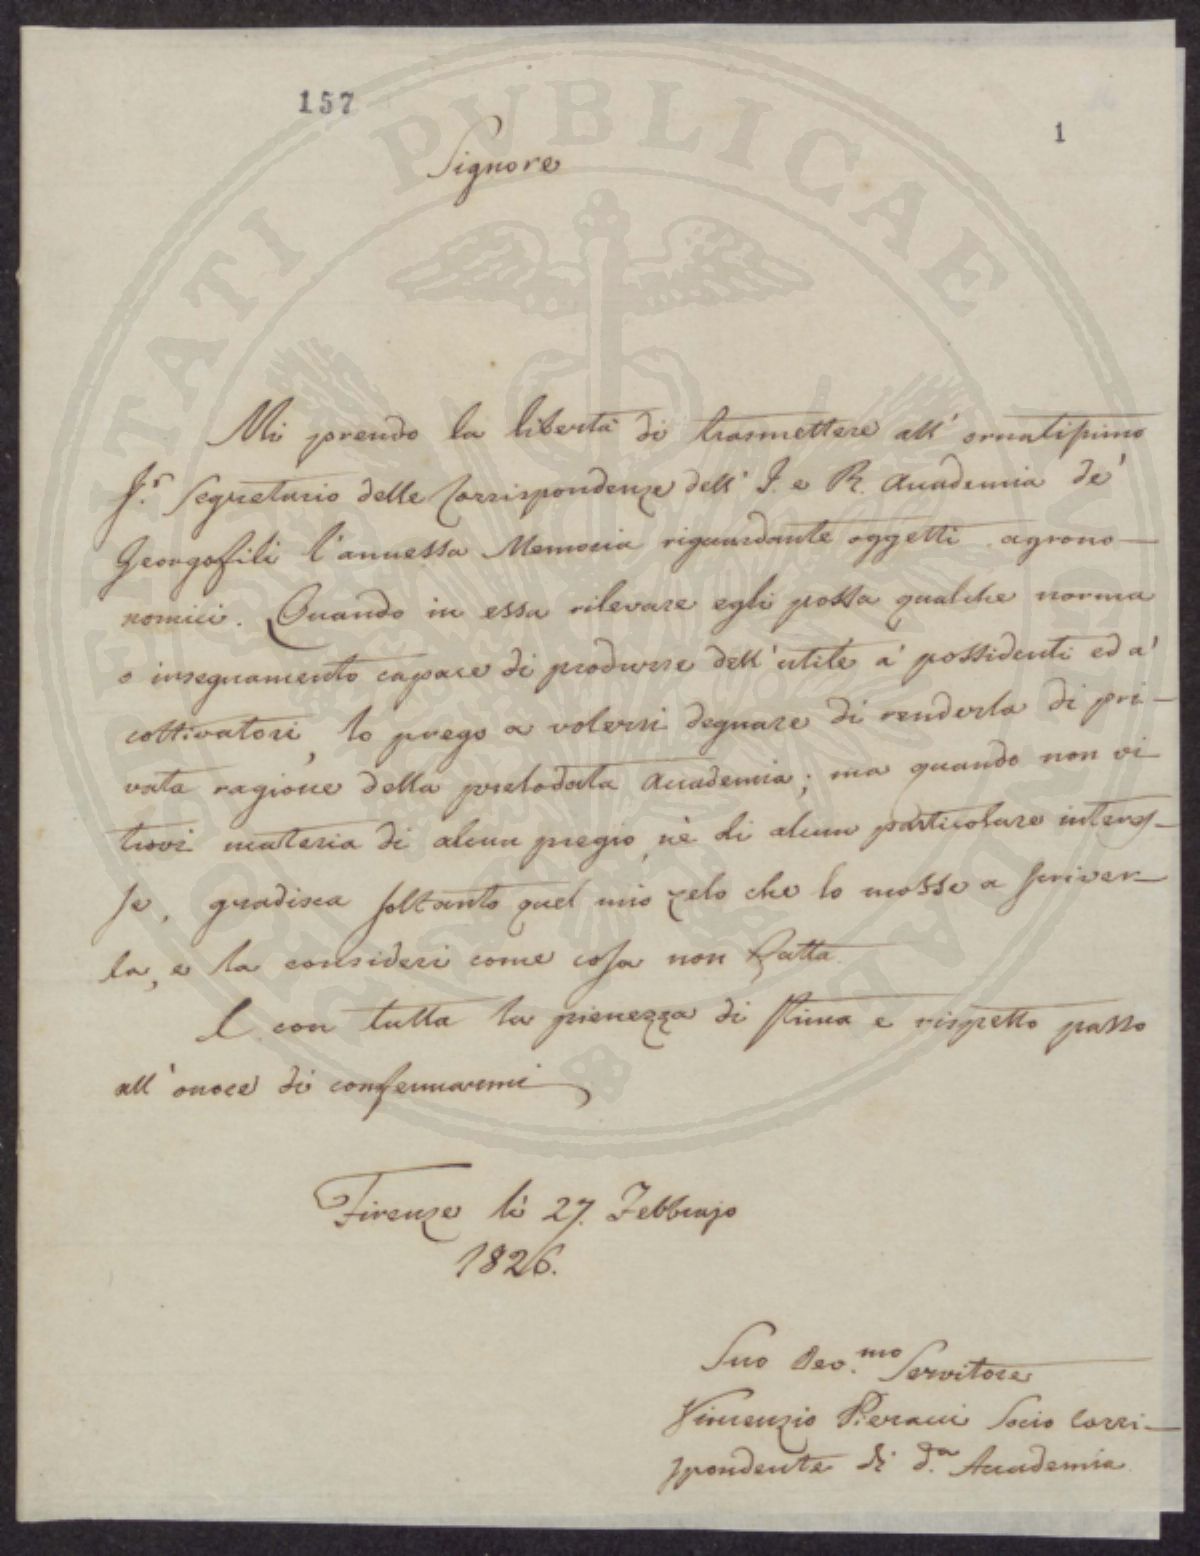 157
1
Signore
Mi prendo la libertà di trasmettere all' ornatissimo
S.r Segretario delle Corrispondenze dell' I. e R. Accademia de'
Georgofili l'annessa Memoria riguardante oggetti agrono-
nomici. Quando in essa rilevare egli possa qualche norma
o insegnamento capace di produrre dell'utile a' possidenti ed a'
coltivatori, lo prego a volersi degnare di renderla di pri-
vata ragione della prelodata Accademia; ma quando non vi
trovi materia di alcun pregio, nè di alcun particolare interes-
se, gradisca soltanto quel mio zelo che lo mosse a scriver-
la, e la consideri come cosa non fatta.
E con tutta la pienezza di stima e rispetto passo
all'onore di confermarmi
Firenze li 27. Febbrajo
1826.
Suo Dev.mo Servitore
Vincenzio Pieracci Socio Corri-
spondente di d.a Accademia
PVBLICAE